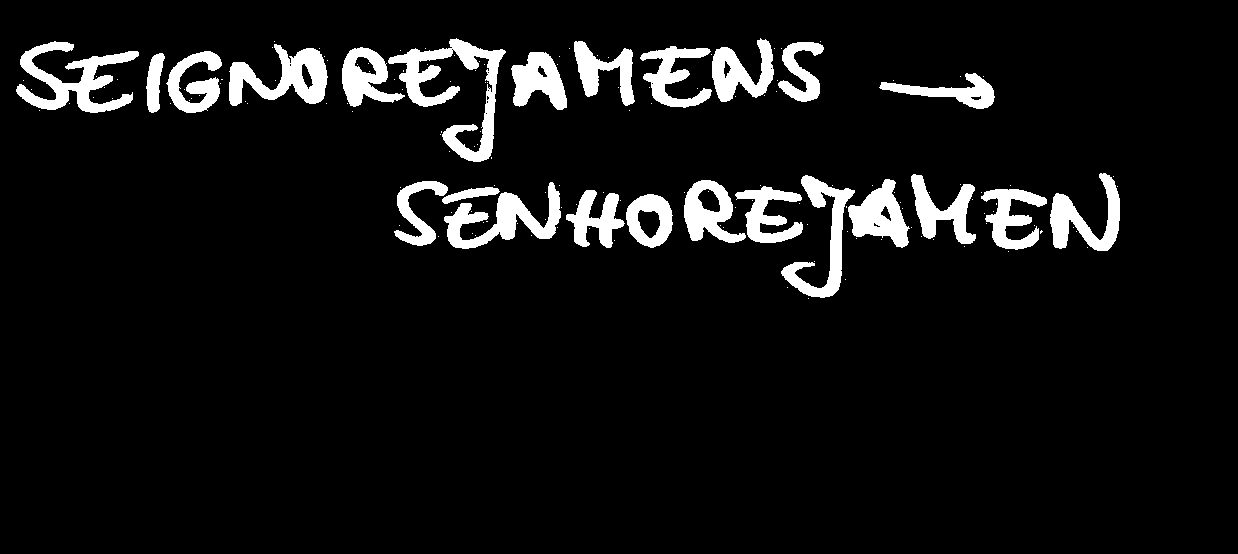 SEIGNOREJAMENS →
SENHOREJAMEN